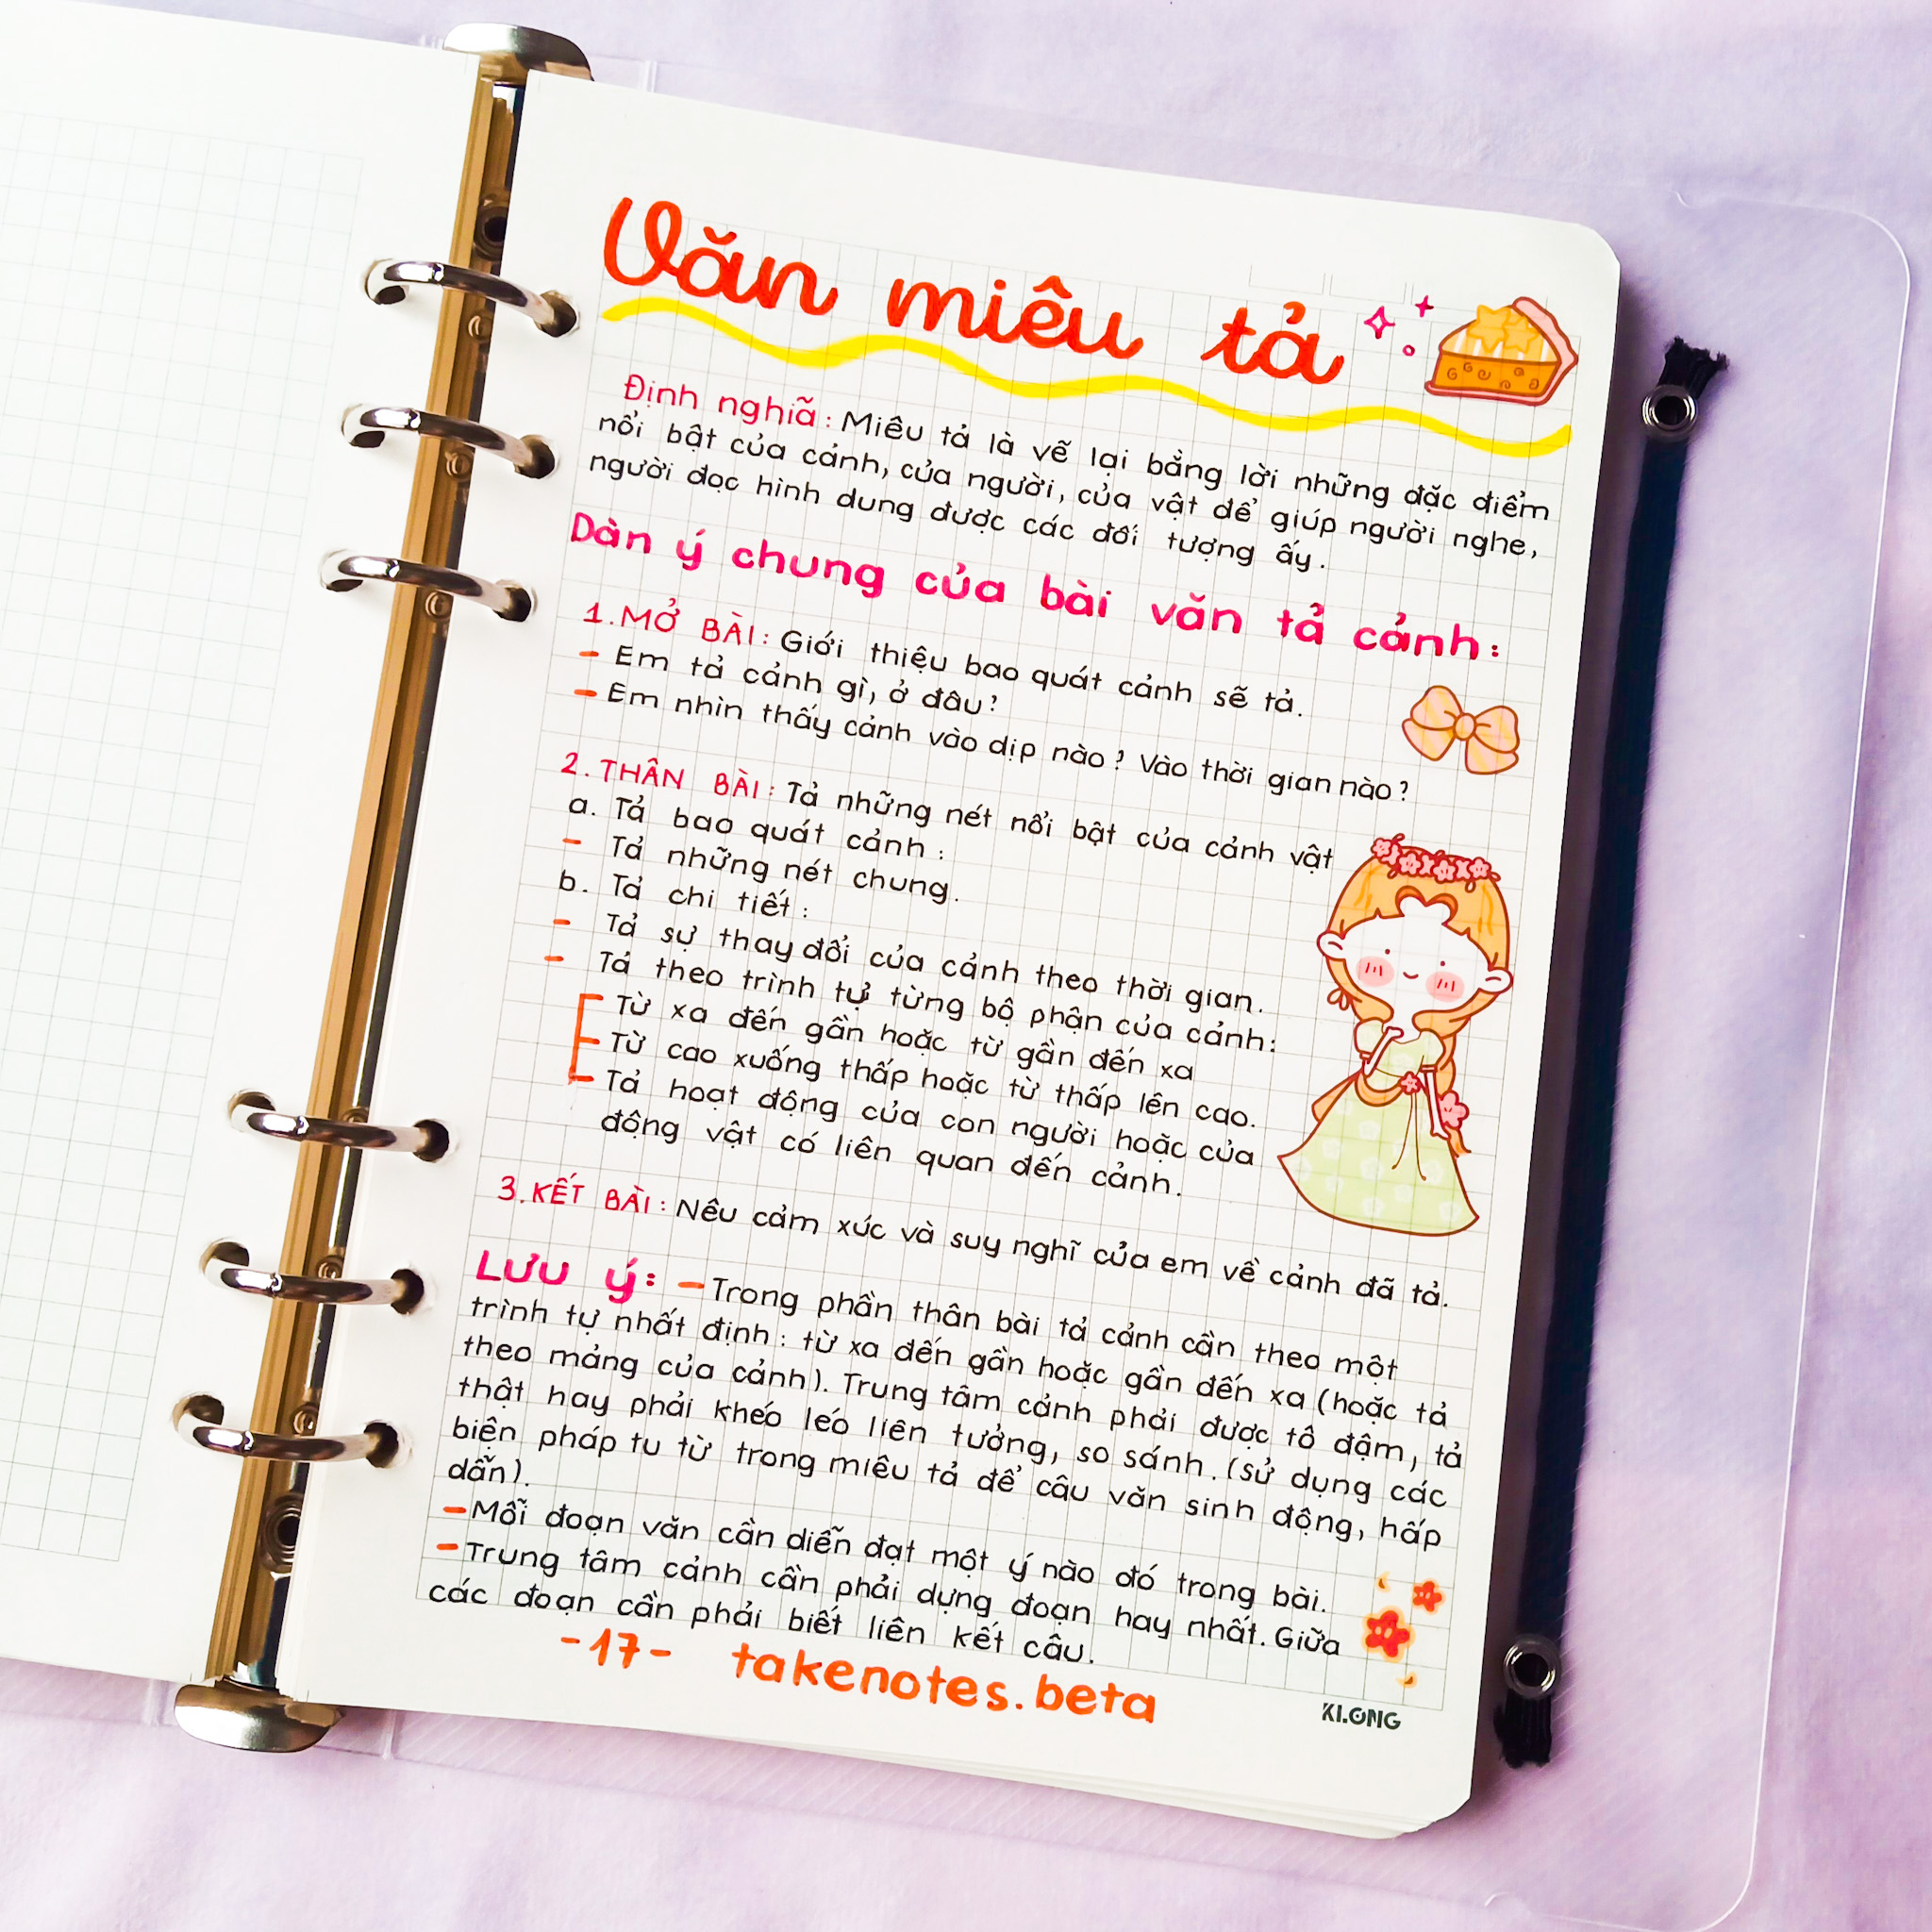 Văn miêu tả
Định nghiã: Miêu tả là vẽ lại bằng lời những đặc điểm
nổi bật của cảnh, của người, của vật để giúp người nghe,
người đọc hình dung được các đối tượng ấy.
Dàn ý chung của bài văn tả cảnh:
1. MỞ BÀI: Giới thiệu bao quát cảnh sẽ tả.
- Em tả cảnh gì, ở đâu?
- Em nhìn thấy cảnh vào dịp nào? Vào thời gian nào?
2. THÂN BÀI: Tả những nét nổi bật của cảnh vật
a. Tả bao quát cảnh:
- Tả những nét chung.
b. Tả chi tiết:
- Tả sự thay đổi của cảnh theo thời gian.
- Tả theo trình tự từng bộ phận của cảnh:
Từ xa đến gần hoặc từ gần đến xa
Từ cao xuống thấp hoặc từ thấp lên cao.
Tả hoạt động của con người hoặc của
động vật có liên quan đến cảnh.
3. KẾT BÀI: Nêu cảm xúc và suy nghĩ của em về cảnh đã tả.
Lưu ý: - Trong phần thân bài tả cảnh cần theo một
trình tự nhất định: từ xa đến gần hoặc gần đến xa (hoặc tả
theo mảng của cảnh). Trung tâm cảnh phải được tô đậm, tả
thật hay phải khéo léo liên tưởng, so sánh. (sử dụng các
biện pháp tu từ trong miêu tả để câu văn sinh động, hấp
dẫn).
- Mỗi đoạn văn cần diễn đạt một ý nào đó trong bài.
- Trung tâm cảnh cần phải dựng đoạn hay nhất. Giữa
các đoạn cần phải biết liên kết câu.
-17- takenotes.beta
KLONG